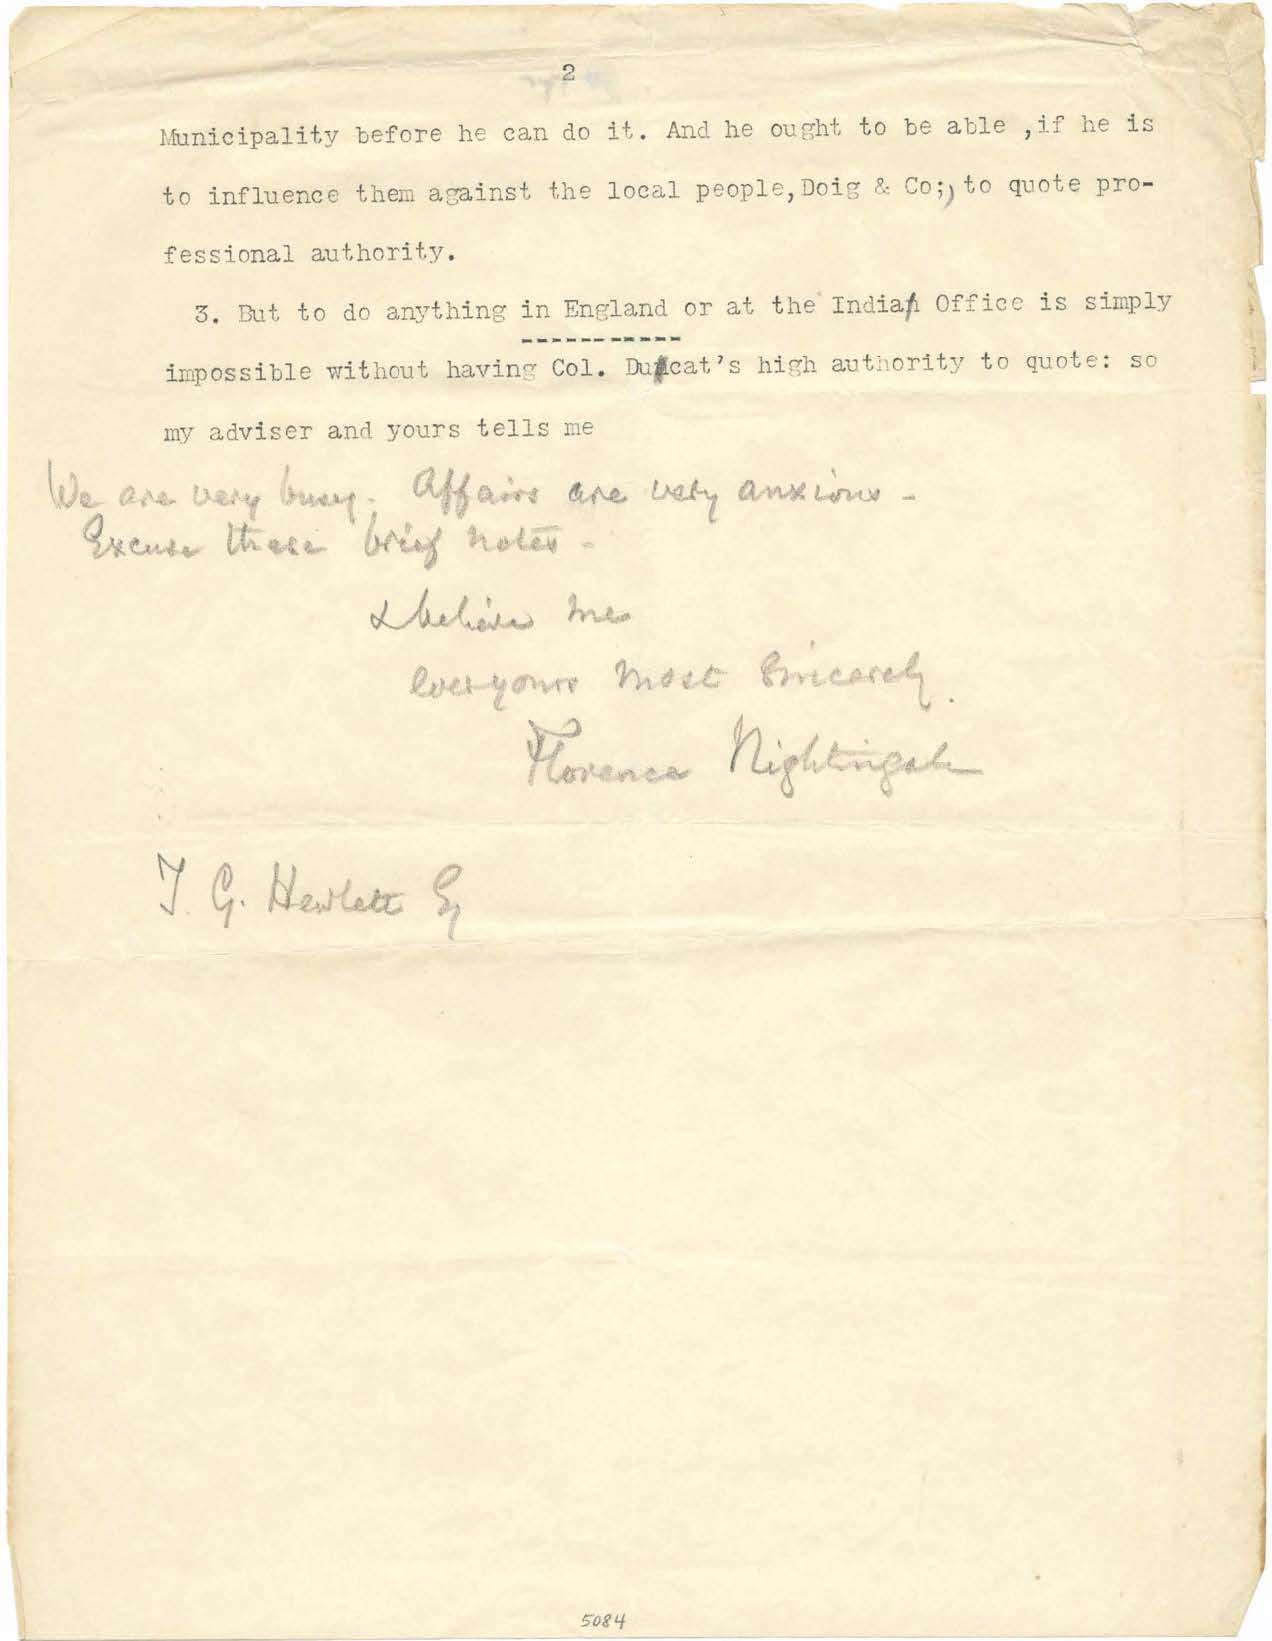 2
Municipality before he can do it. And he ought to be able ,if he is
to influence them against the local people,Doig & Co;) to quote pro-
fessional authority.
3. But to do anything in England or at the India Office is simply
impossible without having Col. Ducat's high authority to quote: so
my adviser and yours tells me
We are very busy. Affairs are very anxious -
Excuse these brief notes -
& believe me
ever yours most sincerely.
Florence Nightingale
T. G. Hewlett Esq
5084